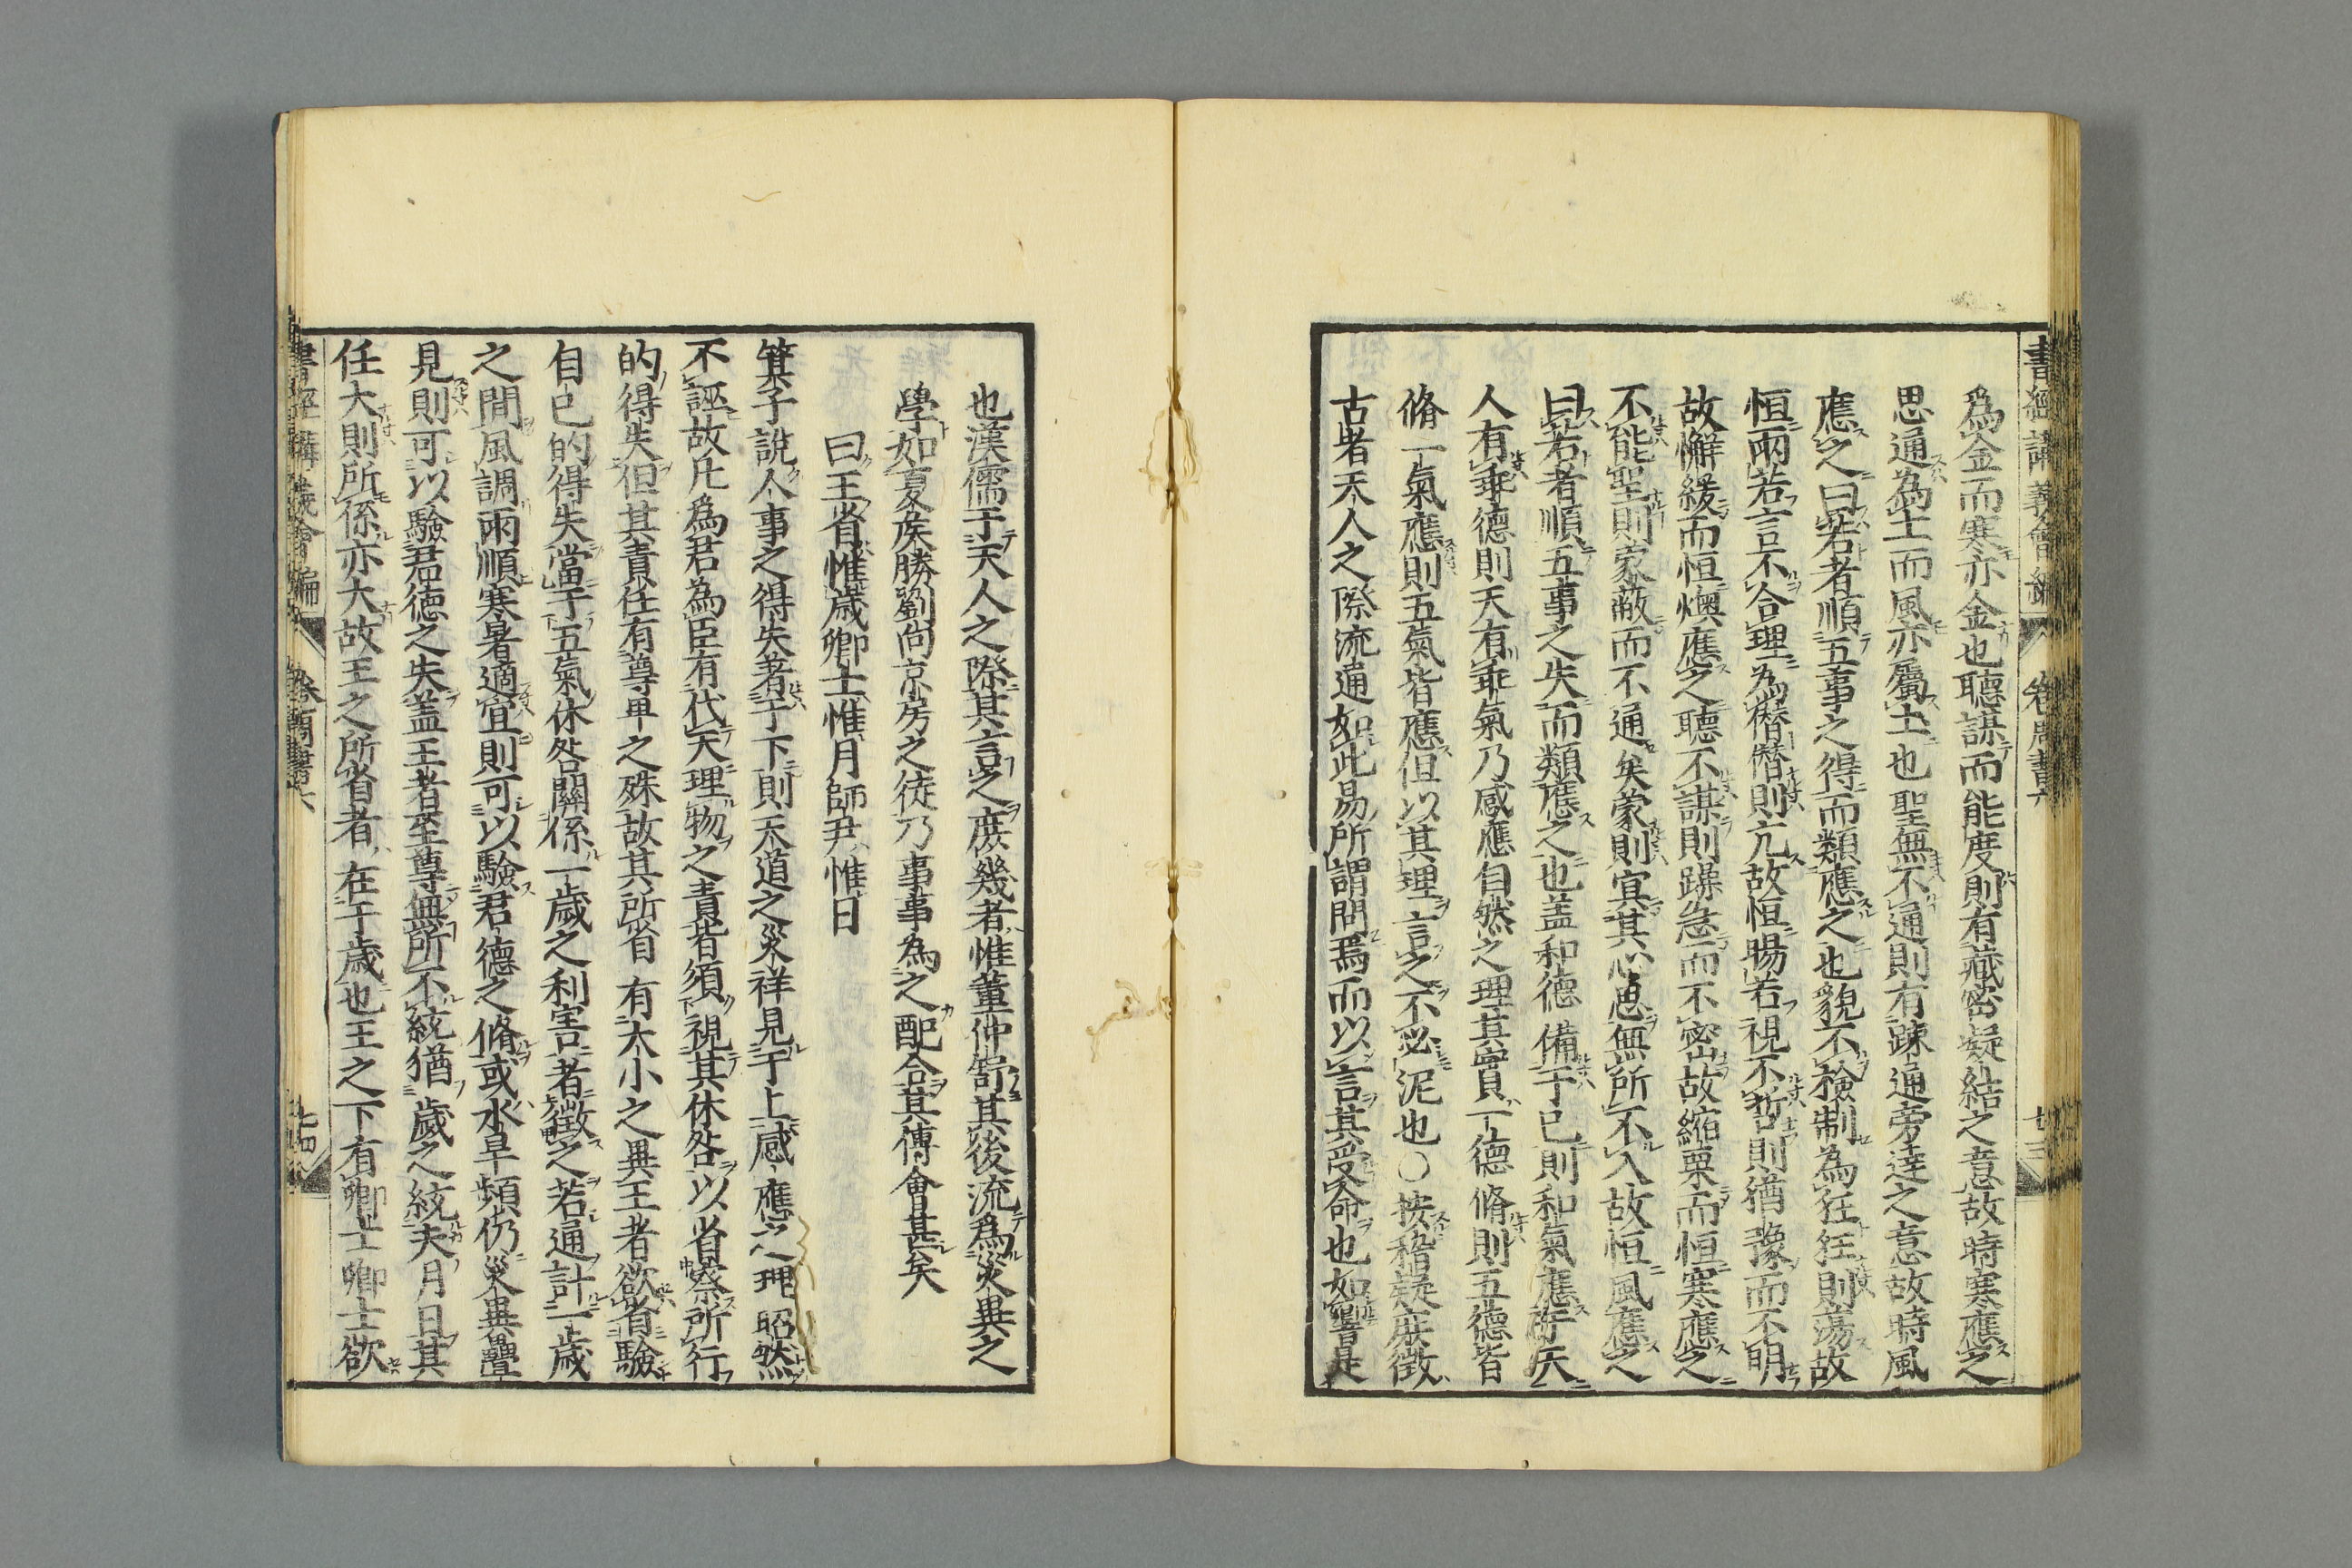 書經講義會編 卷周書六 廿三
爲金而寒亦金也聽謀而能度則有藏密凝結之意故時寒應之
思通為土而風亦屬土也聖無不通則有疎通旁達之意故時風
應之曰若者順五事之得而類應之也貌不檢制為狂狂則蕩故
恒雨若言不合理為僭僭則亢故恒暘若視不哲則猶豫而不明
故懈緩而恒燠應之聽不謀則躁急而不密故縮栗而恒寒應之
不能聖則蒙蔽而不通矣蒙則寘其心思無所不入故恒風應之
曰若者順五事之失而類應之也盖和德備于已則和氣應于天
人有乖德則天有乖氣乃感應自然之理其實一德脩則五德皆
脩一氣應則五氣皆應但以其理言之不必泥也○按稽疑庶徵
古者天人之際流通如此易所謂問焉而以言其受命也如響是
也漢儒于天人之際其言之庶幾者惟董仲舒其後流爲災異之
學如夏矦勝劉向京房之徒乃事事為之配合其傅會甚矣
曰王省惟歲卿士惟月師尹惟日
箕子說人事之得失著于下則天道之災祥見于上感應之理昭然
不誣故凡爲君為臣有代天理物之責皆須視其休咎以省察所行
的得失但其責任有尊卑之殊故其所省有大小之異王者欲省驗
自已的得失當于五氣休咎關係一歲之利害者徵之若通計一歲
之間風調雨順寒暑適宜則可以驗君德之脩或水旱頻仍災異疊
見則可以驗君德之失盖王者至尊無所不統猶歲之統夫月日其
任大則所係亦大故王之所省者在于歲也王之下有卿士卿士欲
書經講義會編